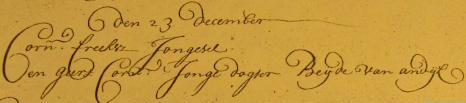 den 23 december
Corn: freeksz Jongesel
en geert Corn: Jonge dogter Beyde van andijk